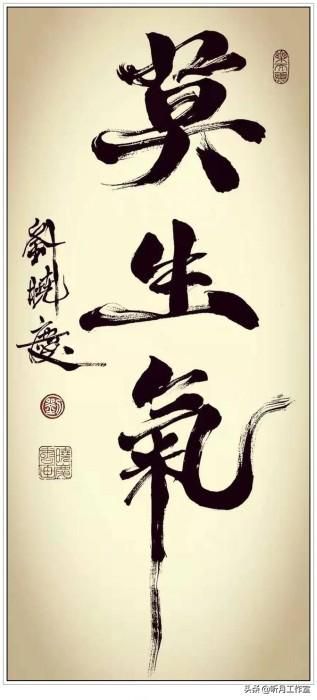 莫生氣
劉曉慶
劉
头条 @昕月工作室